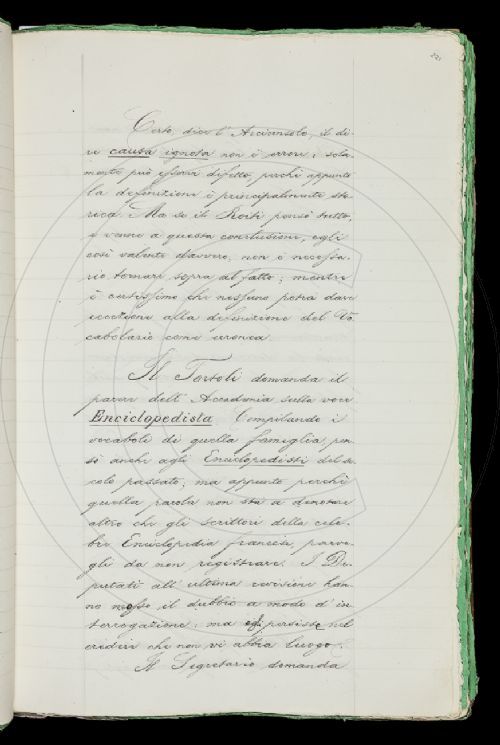 221
Certo dice l'Arciconsolo, il di-
re causa ignota non è errore; sola-
mente può esservi difetto, perchè appunto
la definizione è principalmente sto-
rica. Ma se il Roiti pensò tutto,
e venne a questa conclusione, egli
così valente davvero, non è necessa-
rio tornare sopra al fatto; mentre
è certissimo che nessuno potrà dare
eccezione alla definizione del Vo-
cabolario come erronea.
Il Tortoli domanda il
parere dell'Accademia sulla voce
Enciclopedista. Compilando i
vocaboli di quella famiglia, pen-
sò anche agli Enciclopedisti del se-
colo passato; ma appunto perchè
quella parola non sta a denotare
altro che gli scrittori della cele-
bre Enciclopedia francese, parve-
gli da non registrare. I De-
putati all'ultima revisione han-
no mosso il dubbio a modo d'in-
terrogazione; ma egli persiste nel
credere che non vi abbia luogo.
Il Segretario domanda